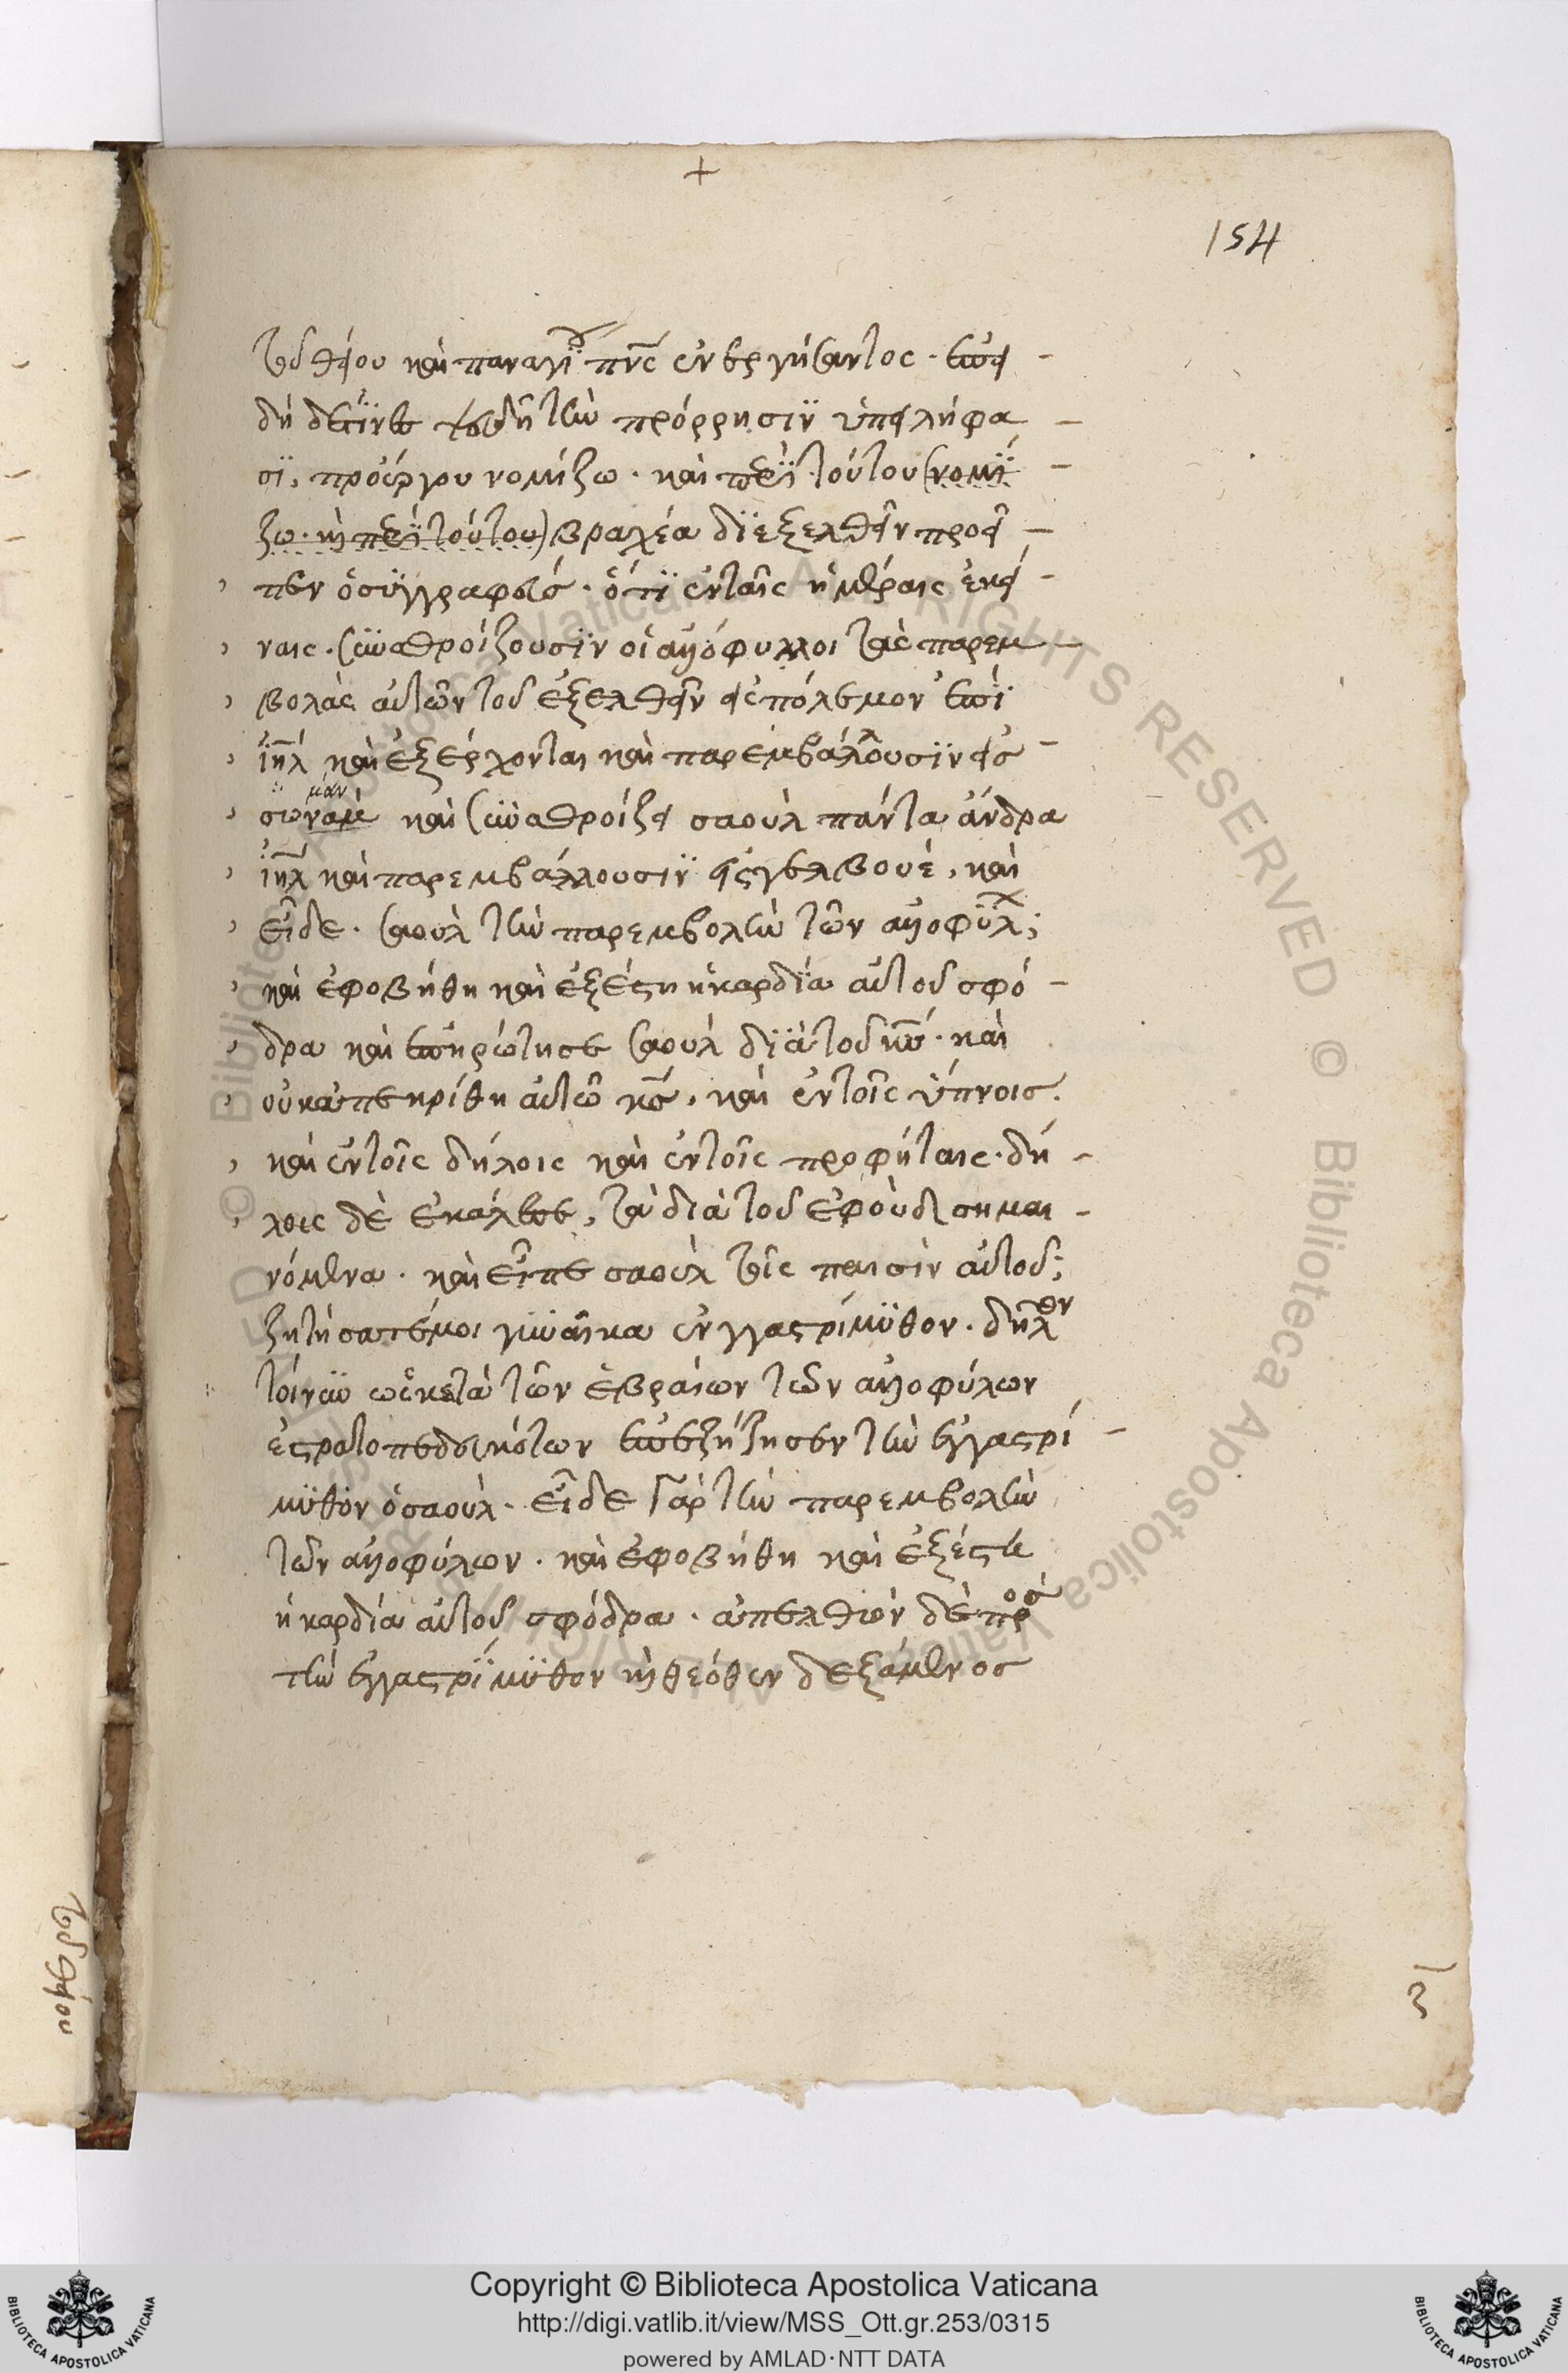 +
154
τοῦ θείου καὶ παναγί πνς ἐνεργήσαντος. ἐπει
δὴ δέ τινες τοιαύτην πρόρρησιν ὑπειλήφα
σι, προύργου νομίζω. καὶ περὶ τούτου (νομί
ζω. κὴ περὶ τούτου) βραχέα διεξελθεῖν προεῖ
πεν ὁ συγγραφεύς. ὅτι ἐν ταῖς ἡμέραις ἐκεί
ναις. συναθροίζουσιν οἱ ἀλλόφυλλοι τὰς παρεμ
βολὰς αὐτῶν τοῦ ἐξελθεῖν εἰς πόλεμον ἐπὶ
ιηλ καὶ ἐξέρχονται καὶ παρεμβάλλουσιν εἰς
μάν
σωναμὲ καὶ συναθροίζει σαοὺλ πάντα ἄνδρα
ιηλ καὶ παρεμβάλλουσιν εἰς γελβουὲ, καὶ
εἶδε. σαοὺλ τὴν παρεμβολὴν τῶν ἀλλοφύλ;
καὶ ἐφοβήθη καὶ ἐξέστη ἡ καρδία αὐτοῦ σφό
δρα καὶ ἐπηρώτησε σαοὺλ διὰ τοῦ κυ. καὶ
οὐκ ἀπεκρίθη αὐτῶ κς, καὶ ἐν τοῖς ὕπνοις.
καὶ ἐν τοῖς δήλοις καὶ ἐν τοῖς προφήταις. δή
λοις δὲ ἐκάλεσε, τὰ διὰ τοῦ ἐφοὺδ σημαι
νόμενα. καὶ εἶπε σαοὺλ τοῖς παισὶν αὐτοῦ;
ζητήσατέ μοι γυναῖκα ἐγγαστρίμυθον. δῆλον
τοίνυν ὡς κατὰ τῶν ἑβραίων τῶν ἀλλοφύλων
ἐστρατοπεδευκότων ἐπεζήτησεν τὴν ἐγγαστρί
μυθον ὁ σαούλ. εἶδε γὰρ τὴν παρεμβολὴν
τῶν ἀλλοφύλων. καὶ ἐφοβήθη καὶ ἐξέστη
ἡ καρδία αὐτοῦ σφόδρα. ἀπελθὼν δὲ πρὸς
τὴν ἐγγαστρίμυθον κὴ θεόθεν δεξάμενος
τοῦ θείου
Copyright © Biblioteca Apostolica Vaticana
http://digi.vatlib.it/view/MSS_Ott.gr.253/0315
powered by AMLAD·NTT DATA